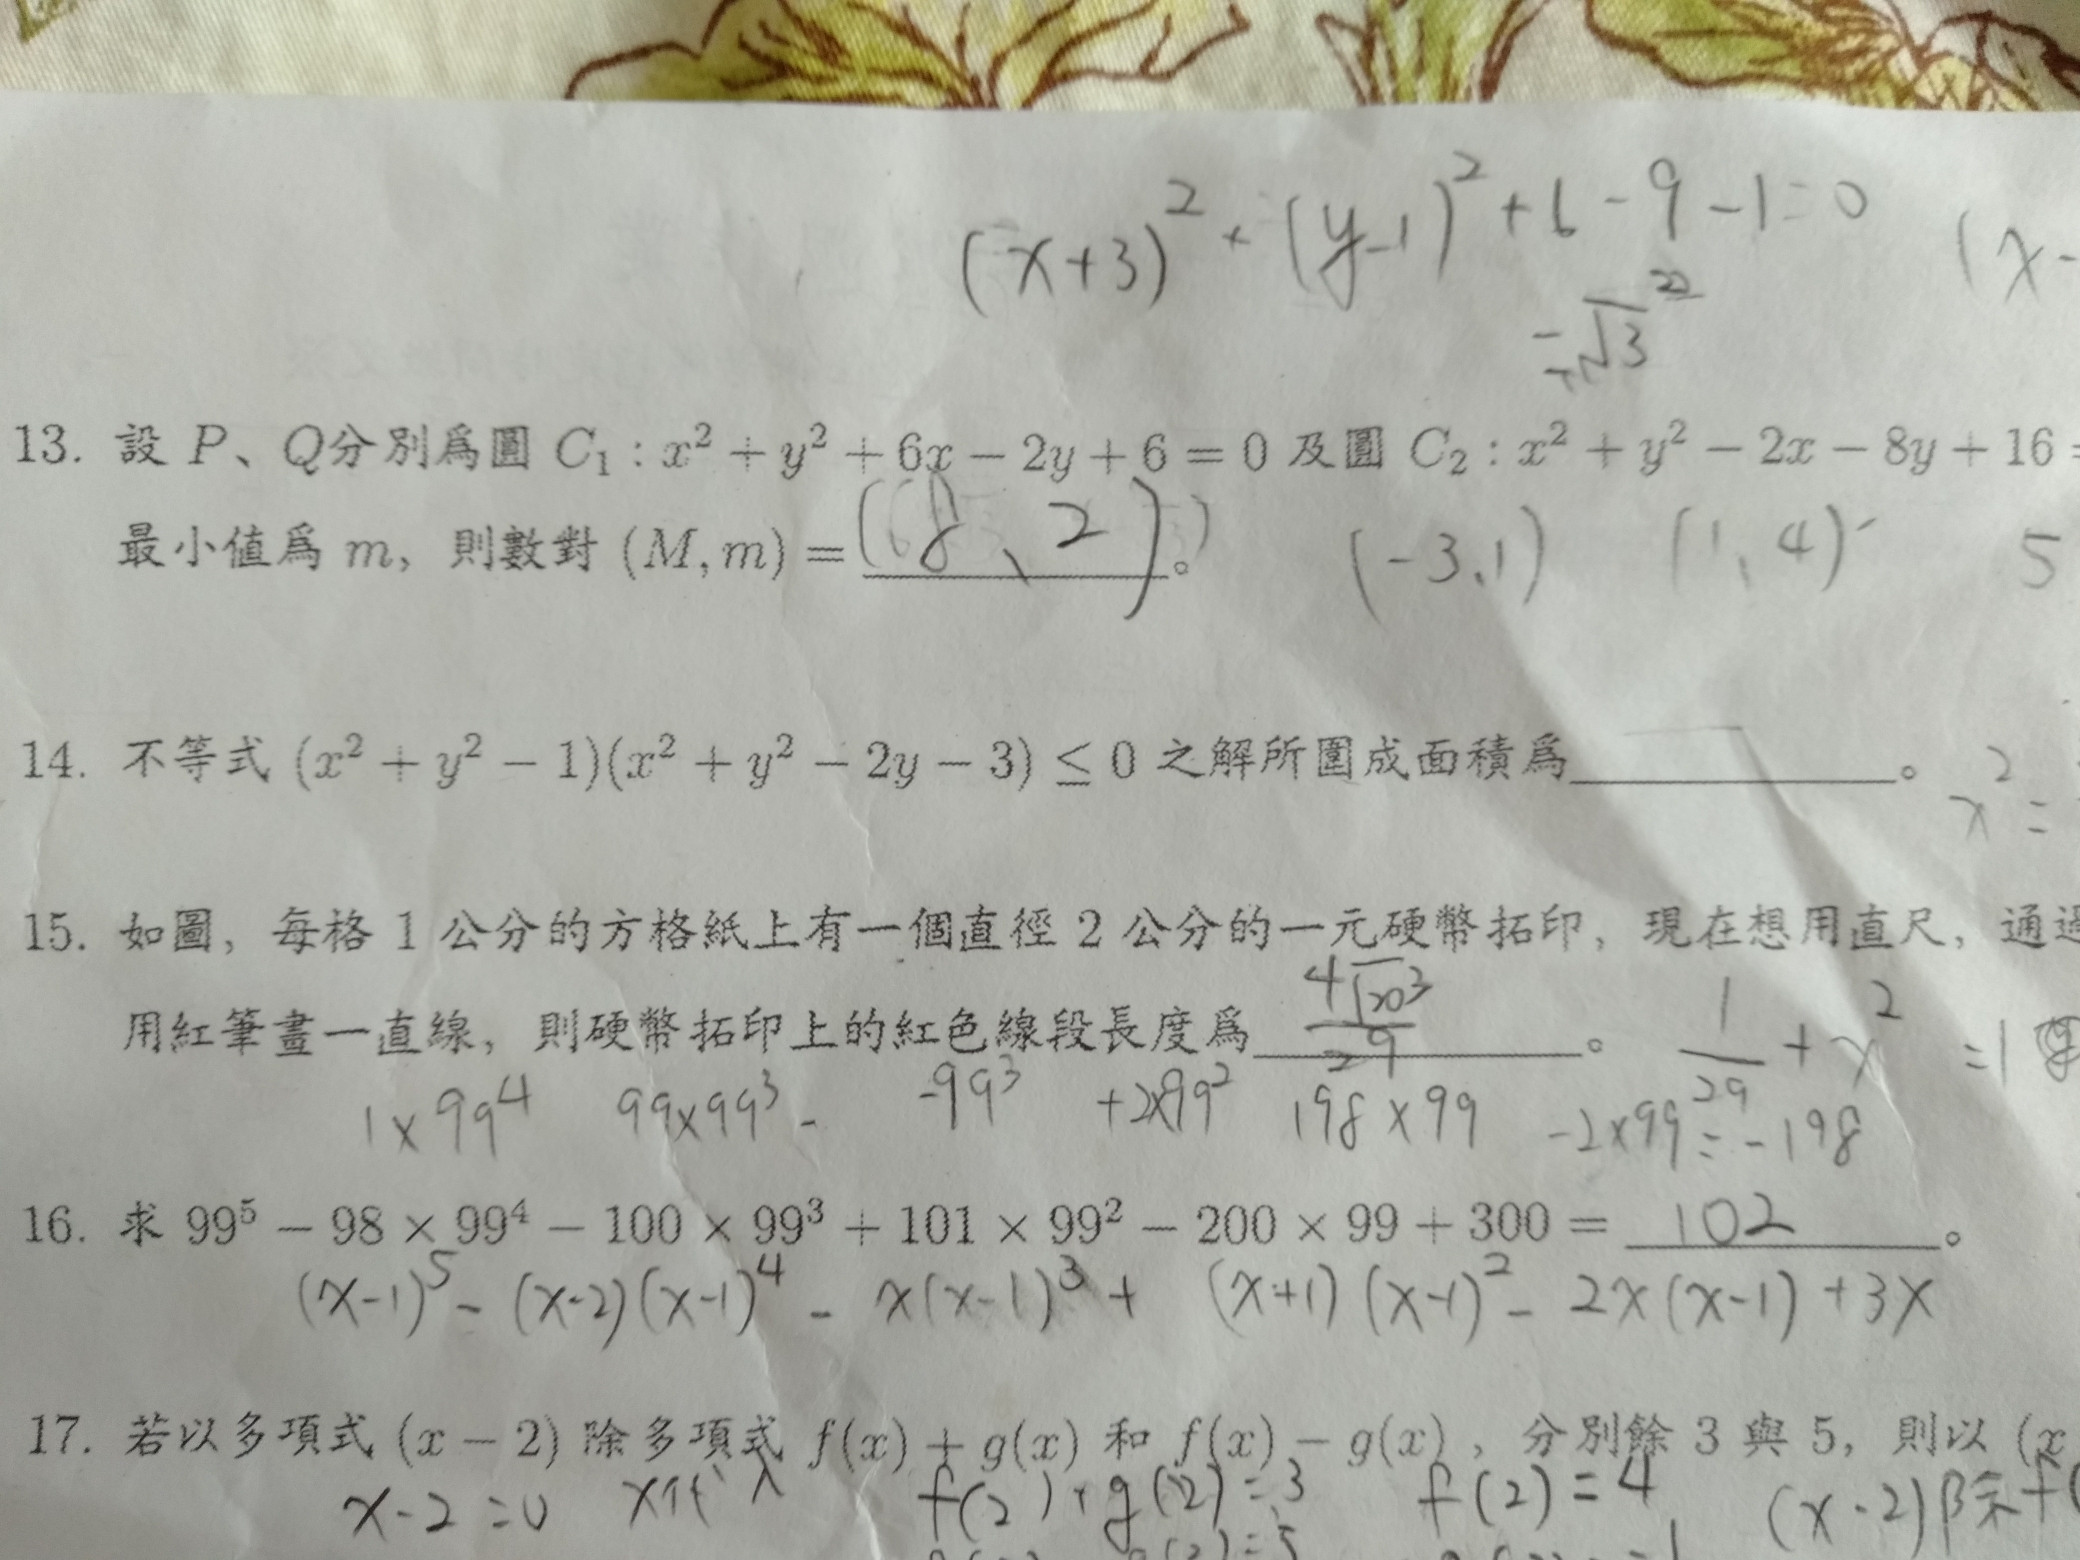 (x+3)² + (y-1)² + 6 - 9 - 1 = 0 (x-
13. 設 P、Q分別爲圓 C₁ : x² + y² + 6x − 2y + 6 = 0 及圓 C₂ : x² + y² − 2x − 8y + 16 =
最小值爲 m，則數對 (M, m) = (8、2)。 (-3,1) (1,4) 5
14. 不等式 (x² + y² − 1)(x² + y² − 2y − 3) ≤ 0 之解所圍成面積爲。
x² =
15. 如圖，每格 1 公分的方格紙上有一個直徑 2 公分的一元硬幣拓印，現在想用直尺，通過
用紅筆畫一直線，則硬幣拓印上的紅色線段長度爲。 1/29 + x² = 1
1×99⁴ 99×99³ - -99³ +2×99² 198×99 -2×99 = -198
16. 求 99⁵ − 98 × 99⁴ − 100 × 99³ + 101 × 99² − 200 × 99 + 300 = 102。
(x-1)⁵ - (x-2)(x-1)⁴ - x(x-1)³ + (x+1)(x-1)² - 2x(x-1) + 3x
17. 若以多項式 (x − 2) 除多項式 f(x) + g(x) 和 f(x) − g(x)，分別餘 3 與 5，則以 (x
x-2=0 f(2)+g(2)=3 f(2)=4 (x-2)除f(